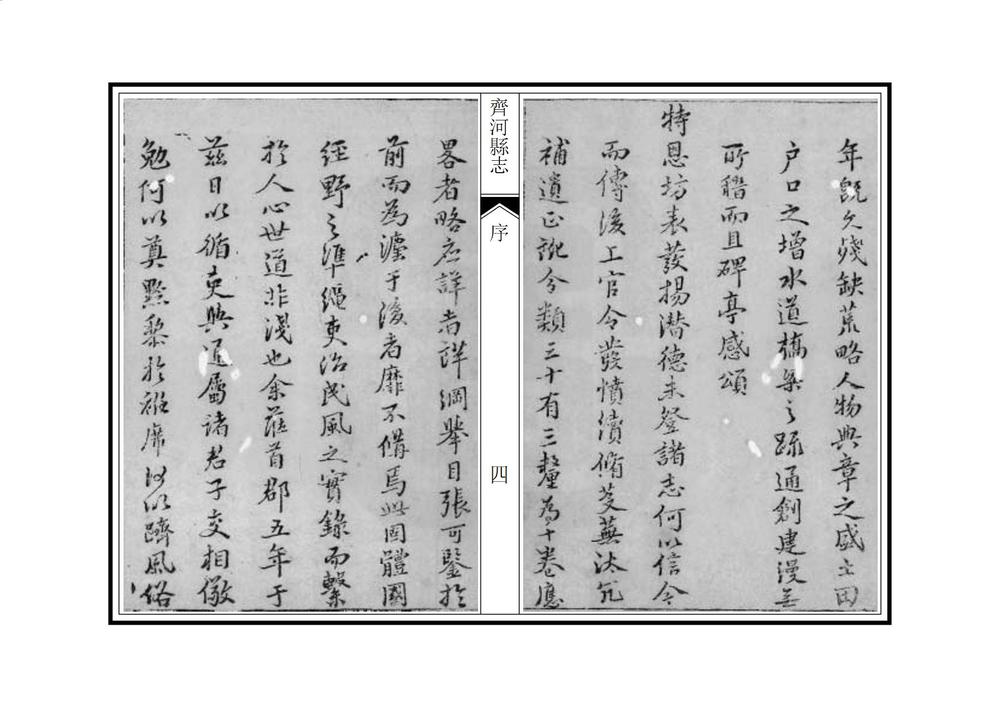 年甑欠殘缺荒略人物典章之盛土田
户口之增水道橋梁之疏通創建漫無
所稽而且碑亭感頌
特恩坊表發揚潛德未登諸志何以信今
而傳後工官令發憤續脩芟蕪汰冗
補遺正訛分類三十有三釐為十卷應
齊河縣志
序
四
畧者略應詳者詳綱舉目張可鑒於
前而為瀍于後者靡不備焉此固體國
經野之準繩吏治民風之實錄而繫
於人心世道非淺也余蒞首郡五年于
茲日以循吏與邑屬諸君子交相儆
勉何以奠黔黎於袵席何以躋風俗